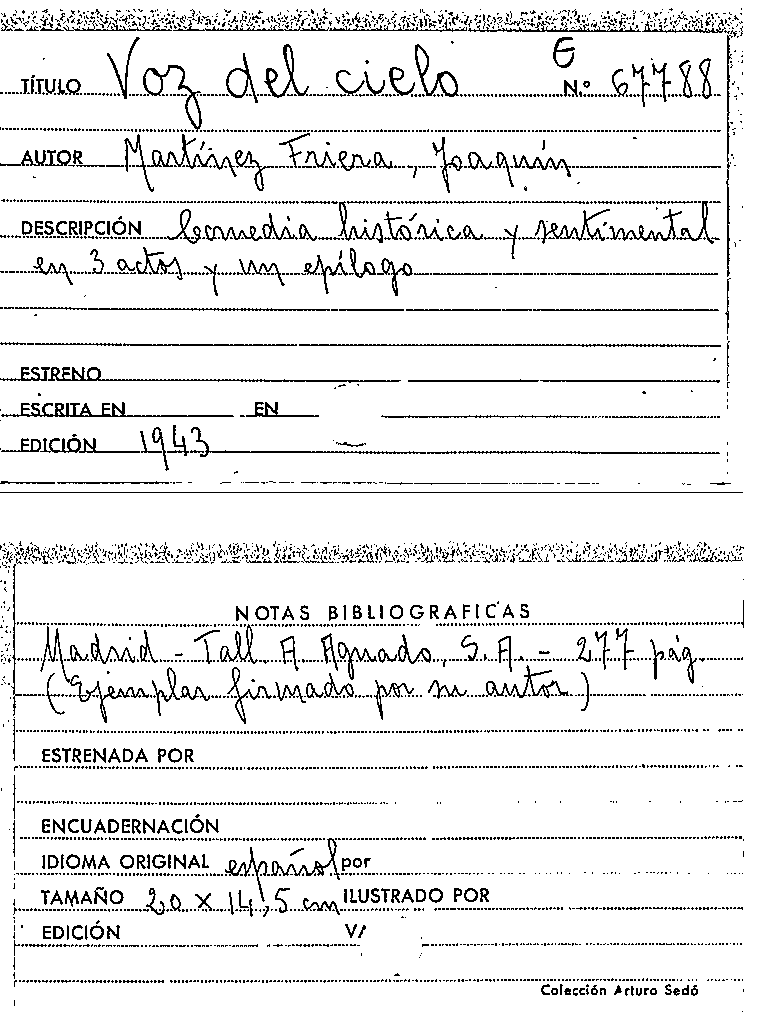 TÍTULO Voz del cielo Nº 67788
AUTOR Martínez Friera, Joaquín
DESCRIPCIÓN Comedia histórica y sentimental
en 3 actos y un epílogo
ESTRENO
ESCRITA EN EN
EDICIÓN 1943
NOTAS BIBLIOGRAFICAS
Madrid - Tall. A Aguado, S.A. - 277 pág.
(Ejemplar firmado por su autor)
ESTRENADA POR
ENCUADERNACIÓN
IDIOMA ORIGINAL español por
TAMAÑO 20 x 14,5 cm ILUSTRADO POR
EDICIÓN V/
Colección Arturo Sedó